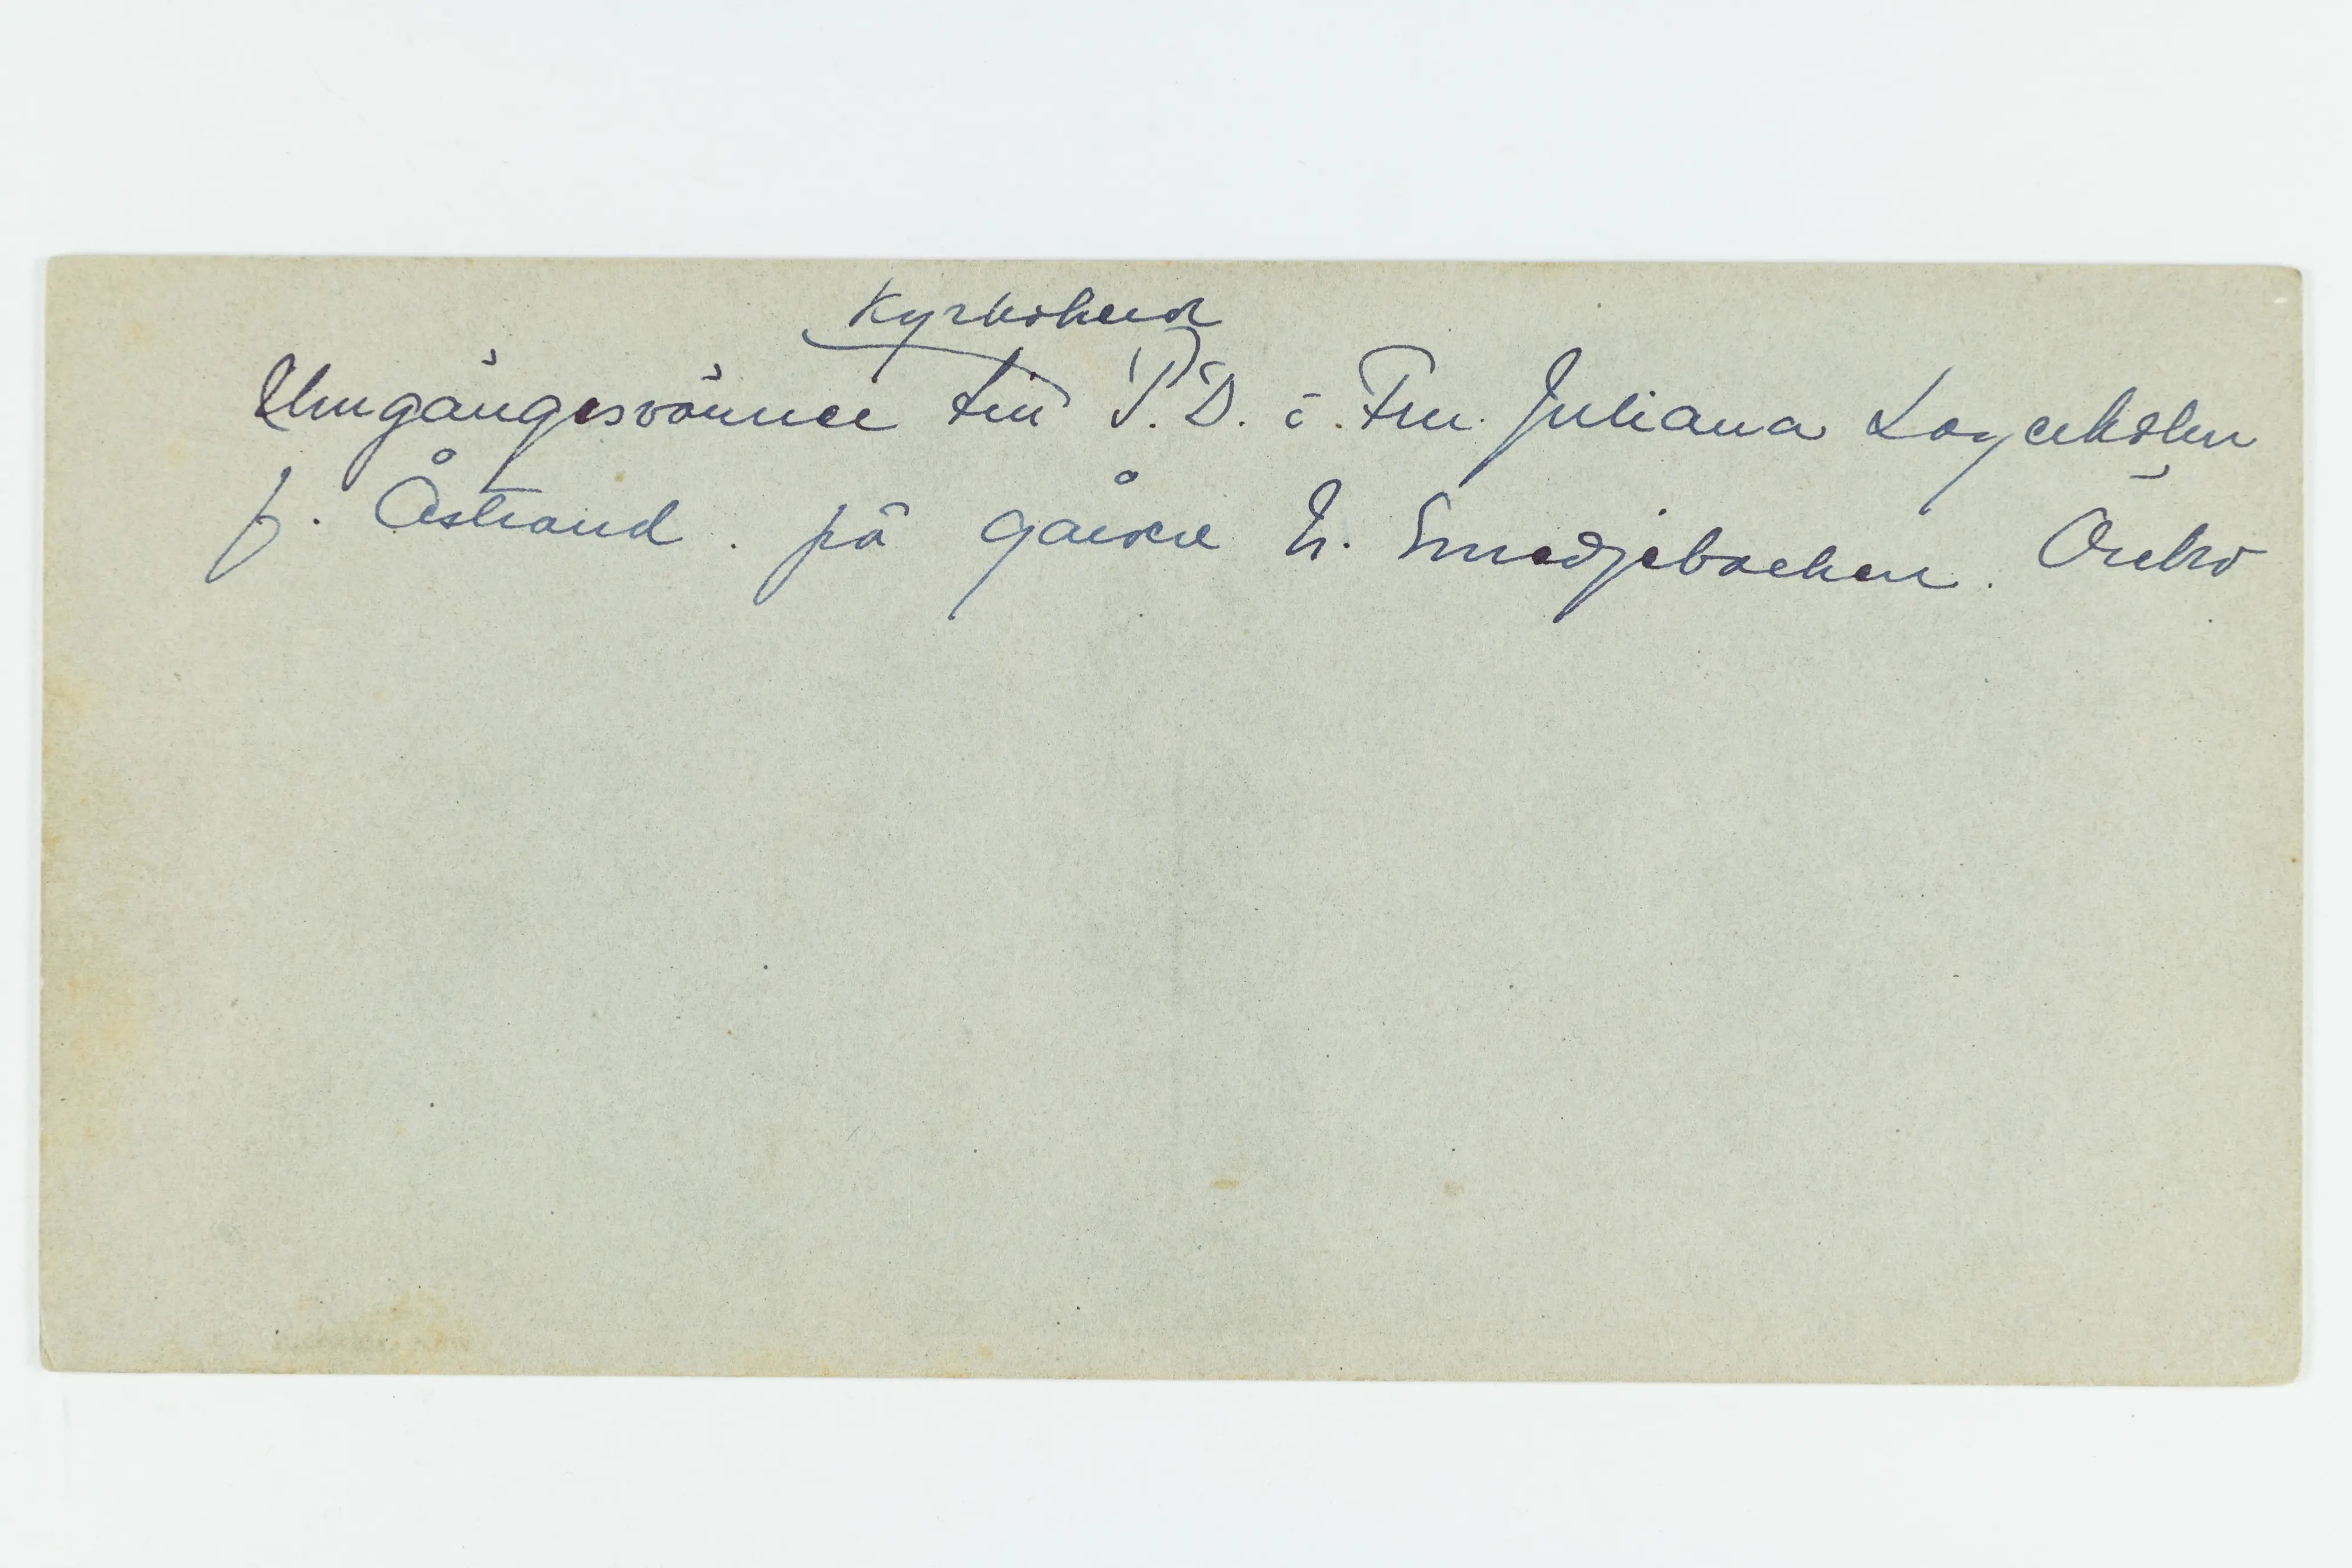 Kyrkoherd
Umgängesvänner till P.D. o. Fru. Juliana Lagerholm
f. Åstrand. på gården L. Smedjebacken. Örebro